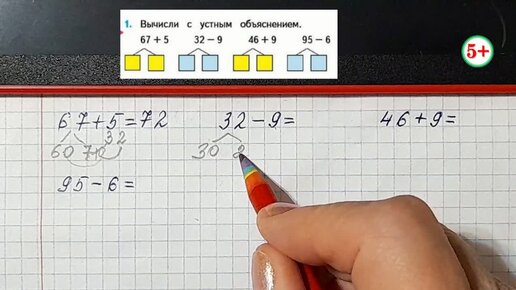 1. Вычисли с устным объяснением.
67 + 5 32 − 9 46 + 9 95 − 6
5+
67+5=72 32−9= 46+9=
3 2
60 7 30 2
95−6=